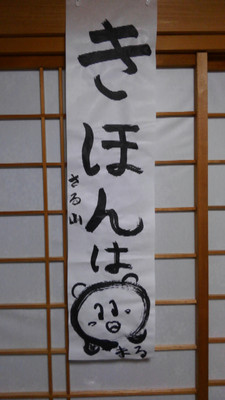 きほんは
さる山
まる